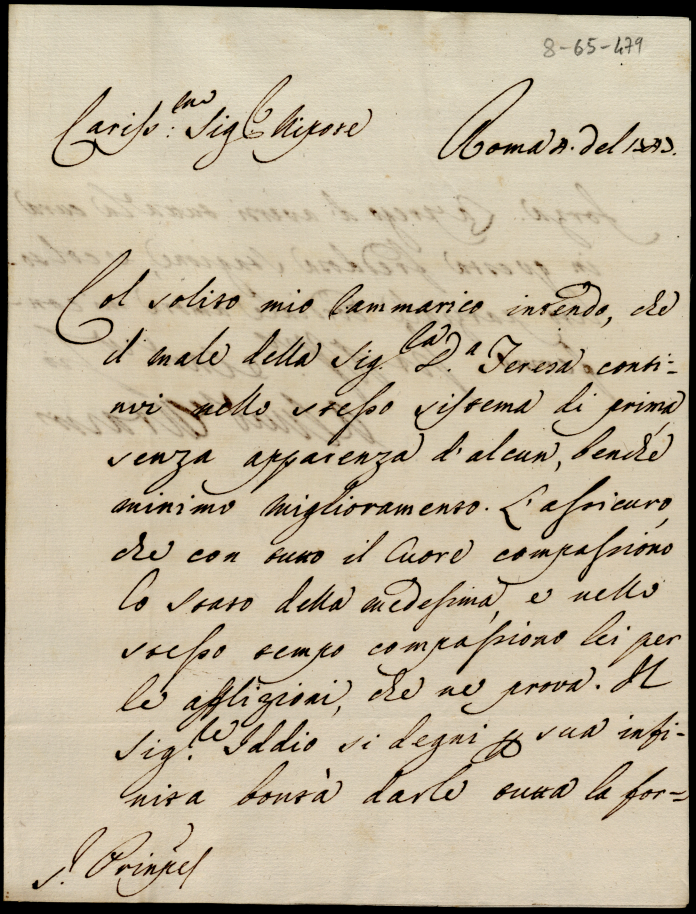 8-65-479
Cariss:mo Sig.e Nipote
Roma del
Col solito mio rammarico intendo, che
il male della Sig.ra D.a Teresa conti=
nui nello stesso sistema di prima
senza apparenza d'alcun, benche
minimo miglioramento. L'assicuro,
che con tutto il Cuore compassiono
lo stato della medesima, e nello
stesso tempo compassiono lei per
le afflizioni, che ne prova. Il
Sig.re Iddio si degni p sua infi=
nita bontà darle tutta la for=